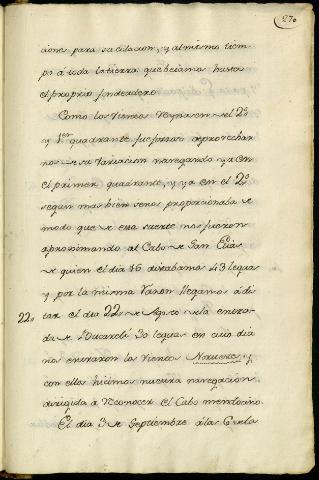 270
aione para su citacion, y al mismo tiem-
po á toda la tierra que beiamos hasta
el proprio fondeadero.
Como los Vientos Reynasen el 2º
y 1er quadrante fue forzoso aprovechar
nos de su variacion navegando ya en
el primer quadrante, y ya en el 2º
segun mas bien senos proporcionaba de
modo que de esta suerte nos fueron
aproximando al Cabo de San Elias
de quien el dia 16 distabamos 43 leguas
y por la misma razon llegamos á dis
22„ tar el dia 22 de Agosto de la entra-
da de Bucareli 30 leguas en cuio dia
nos entraron los vientos Noruestes y
con ellos hicimos nuestra navegacion
dirigida á Reconocer el Cabo mendocino.
El dia 3 de Septiembre á las 6 de la